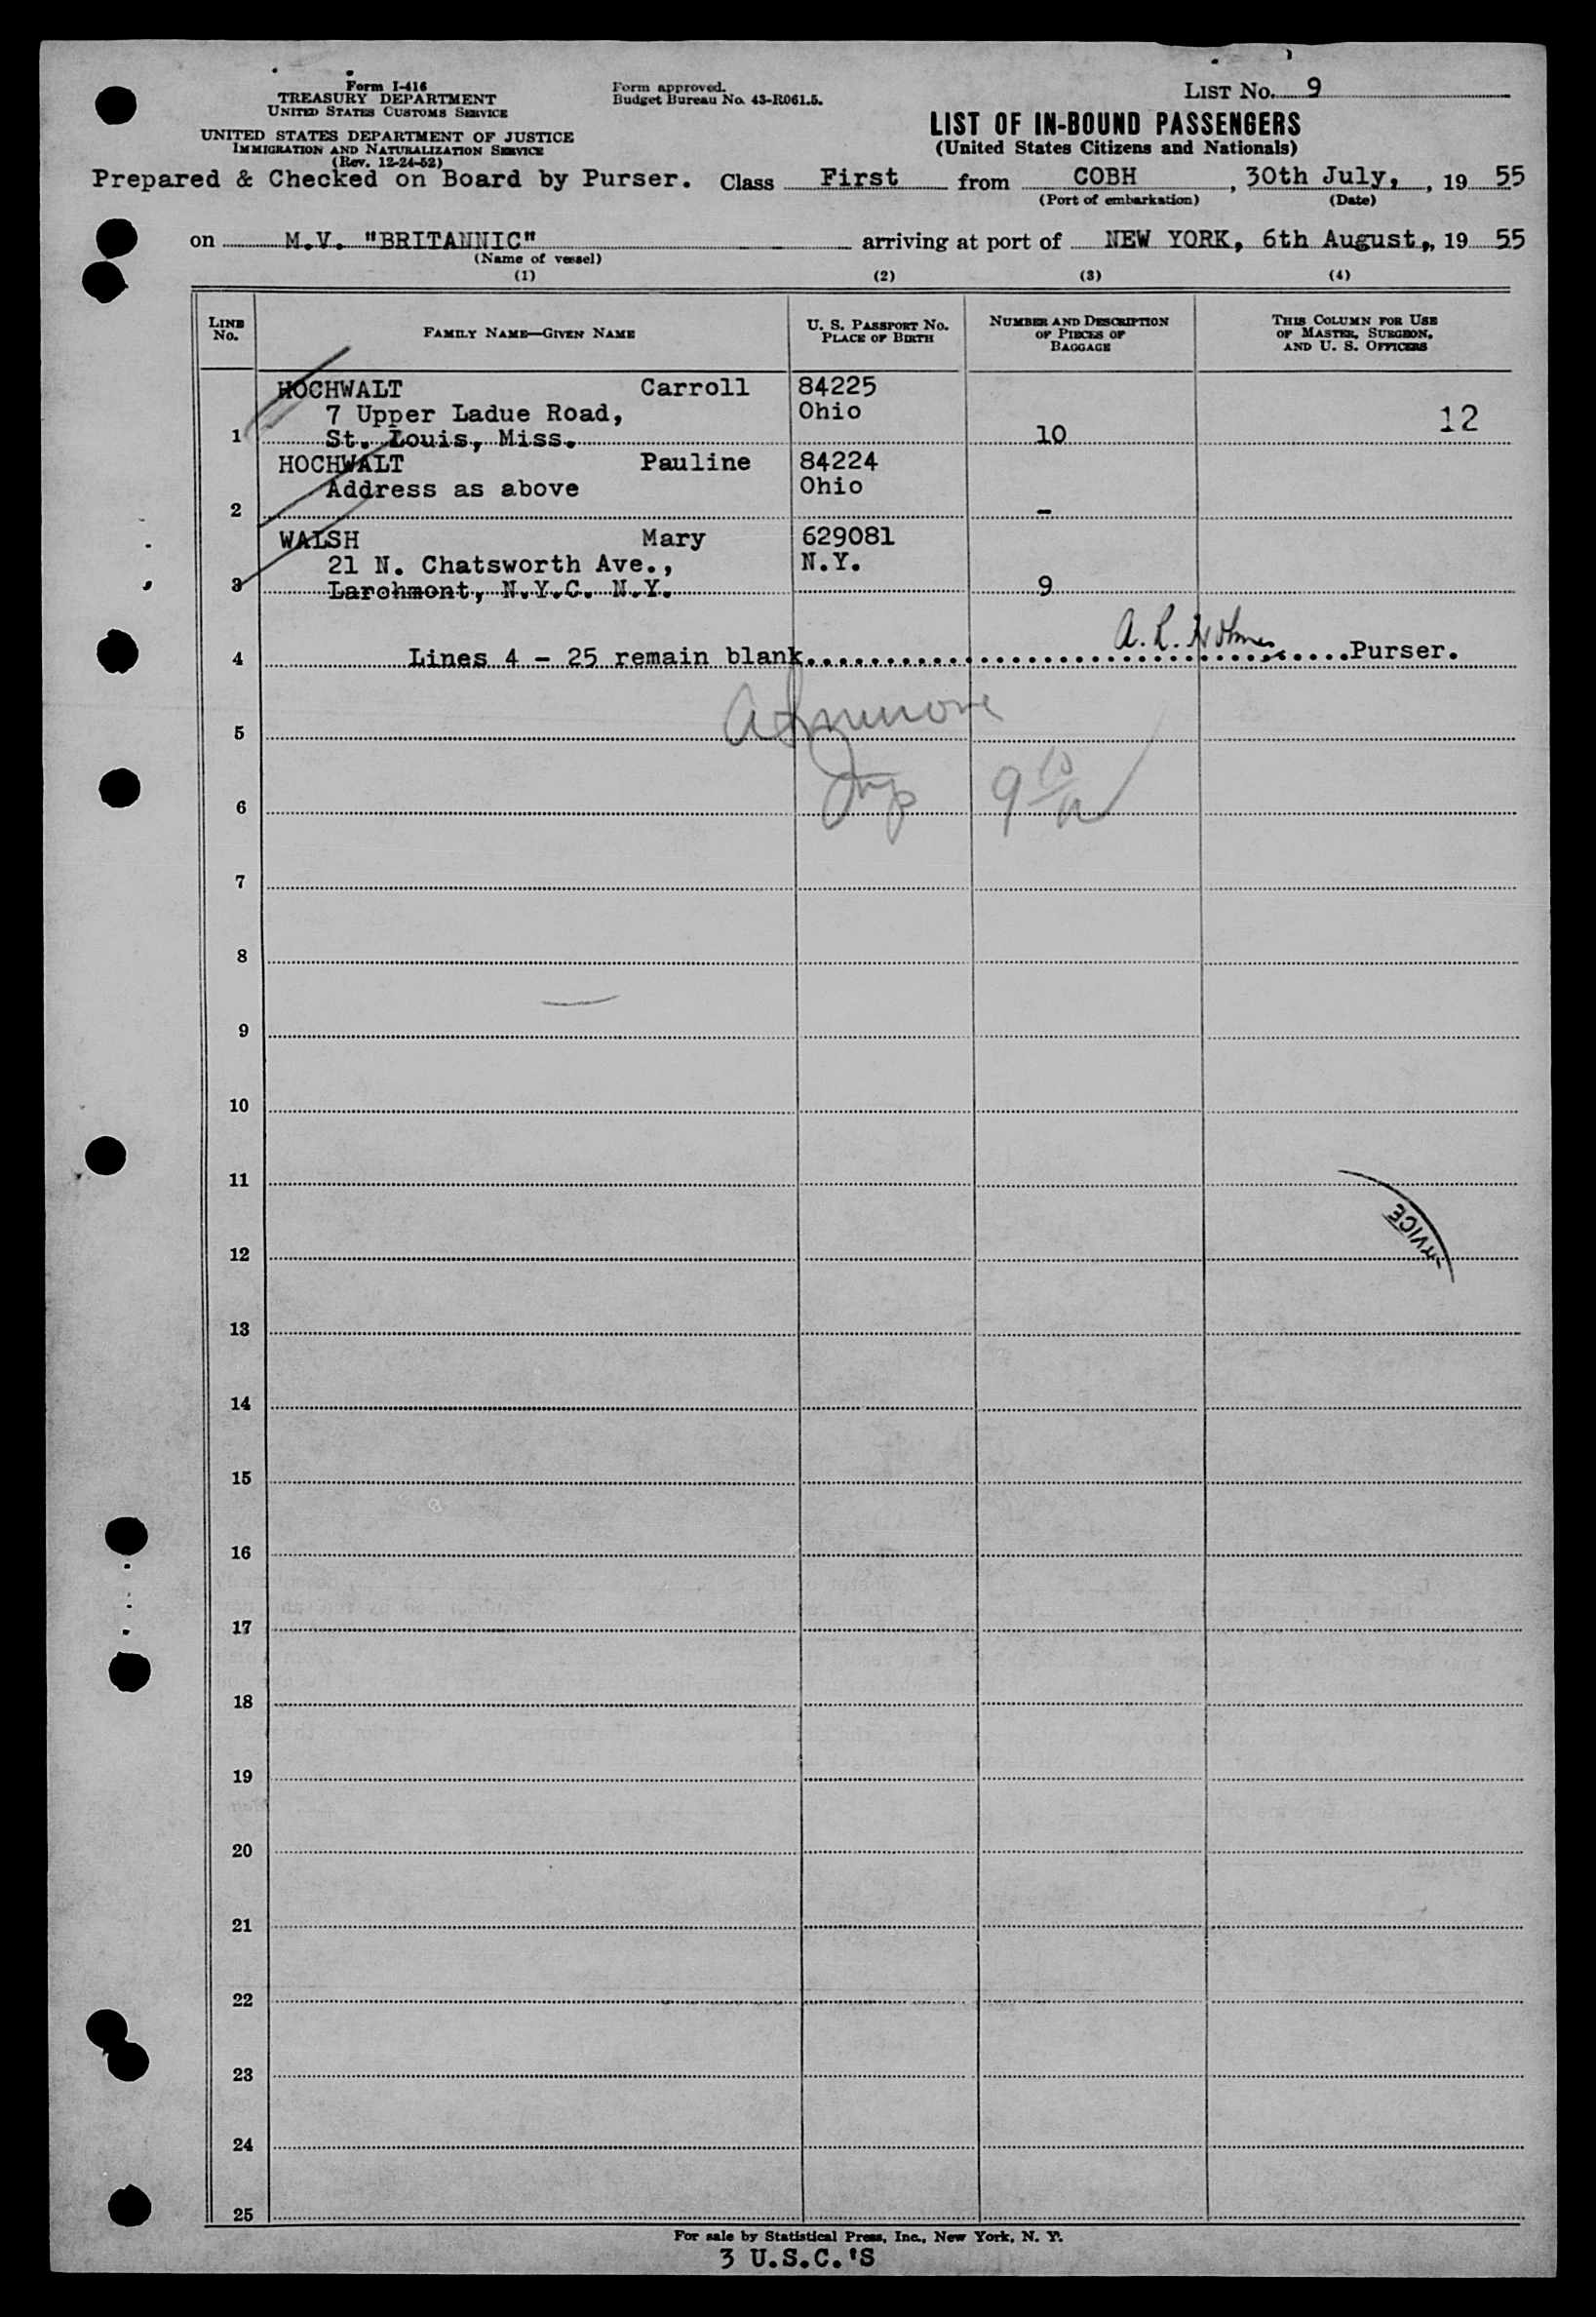 Form I-416
TREASURY DEPARTMENT
UNITED STATES CUSTOMS SERVICE
UNITED STATES DEPARTMENT OF JUSTICE
IMMIGRATION AND NATURALIZATION SERVICE
(Rev. 12-24-52)
Form approved.
Budget Bureau No. 43-R061.5.
LIST No. 9
LIST OF IN-BOUND PASSENGERS
(United States Citizens and Nationals)
Prepared & Checked on Board by Purser. Class First from COBH, 30th July, , 19 55
(Port of embarkation) (Date)
on M.V. "BRITANNIC" arriving at port of NEW YORK, 6th August, , 19 55
(Name of vessel)
(1) (2) (3) (4)
LINE No. FAMILY NAME—GIVEN NAME U. S. PASSPORT NO. PLACE OF BIRTH NUMBER AND DESCRIPTION OF PIECES OF BAGGAGE THIS COLUMN FOR USE OF MASTER, SURGEON, AND U. S. OFFICERS
HOCHWALT Carroll 84225
7 Upper Ladue Road, Ohio 12
1 St. Louis, Miss. 10
HOCHWALT Pauline 84224
Address as above Ohio
2 -
WALSH Mary 629081
21 N. Chatsworth Ave., N.Y.
3 Larchmont, N.Y.C. N.Y. 9
A. R. Holmes
4 Lines 4 - 25 remain blank Purser.
5
6
7
8
9
10
11
12
13
14
15
16
17
18
19
20
21
22
23
24
25
For sale by Statistical Press, Inc., New York, N. Y.
3 U.S.C.'S